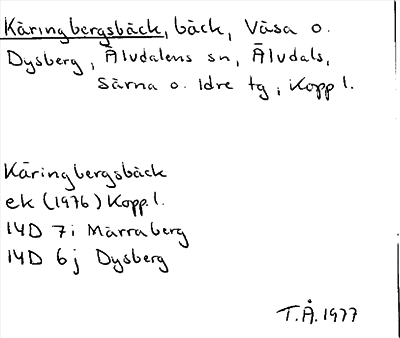 Käringbergsbäck, bäck, Väsa o.
Dysberg, Älvdalens sn, Älvdals,
Särna o. Idre tg, Kopp l.
Käringbergsbäck
ek (1976) Kopp. l.
14D 7i Märraberg
14D 6j Dysberg
T.Å. 1977